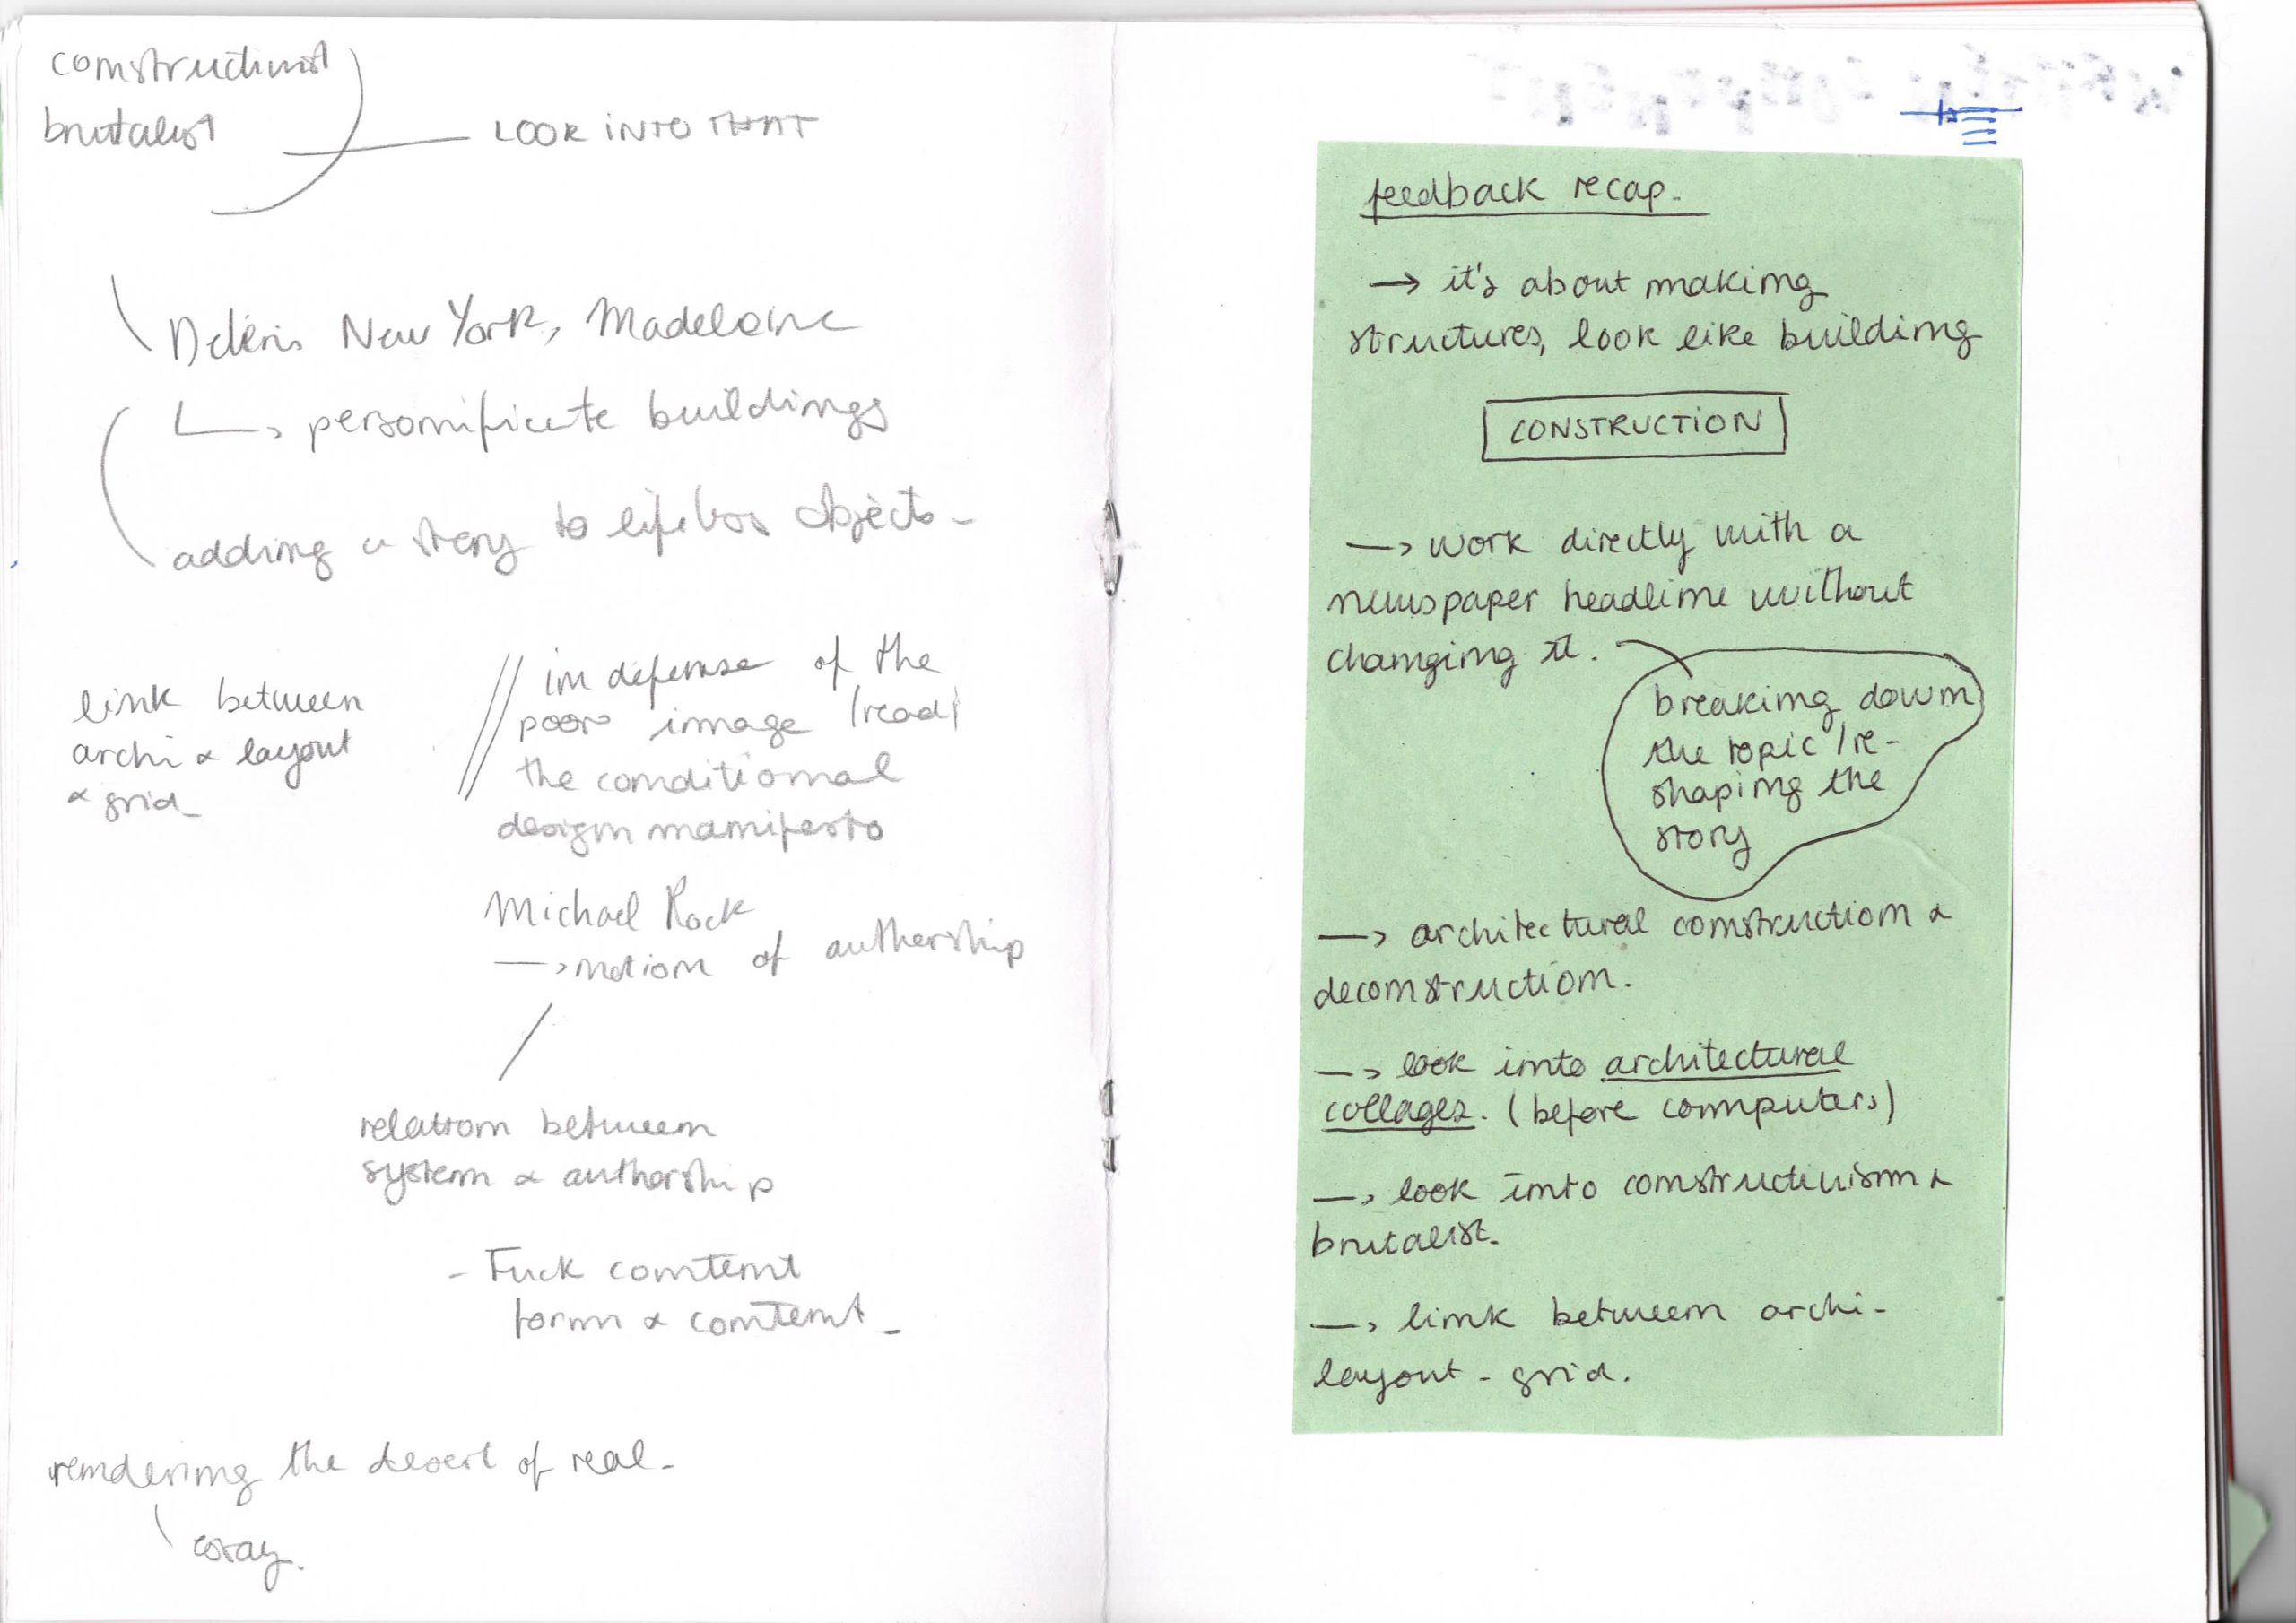 constructivist
brutalist
LOOK INTO THAT
Deliris New York, Madelone
↳ personificate buildings
adding a story to lifeless objects -
link between
archi & layout
& grid
// in defense of the
poor image (read)
the conditional
design manifesto
Michael Rock
→ notion of authership
relation between
system & authorship
- Fuck content
form & content -
rendering the desert of real -
essay.
feedback recap.
→ it's about making
structures, look like building
CONSTRUCTION
→ work directly with a
newspaper headline without
changing it.
breaking down
the topic / re-
shaping the
story
→ architectural construction &
deconstruction.
→ look into architectural
collages. (before computers)
→ look into constructivism &
brutalist.
→ link between archi-
layout - grid.